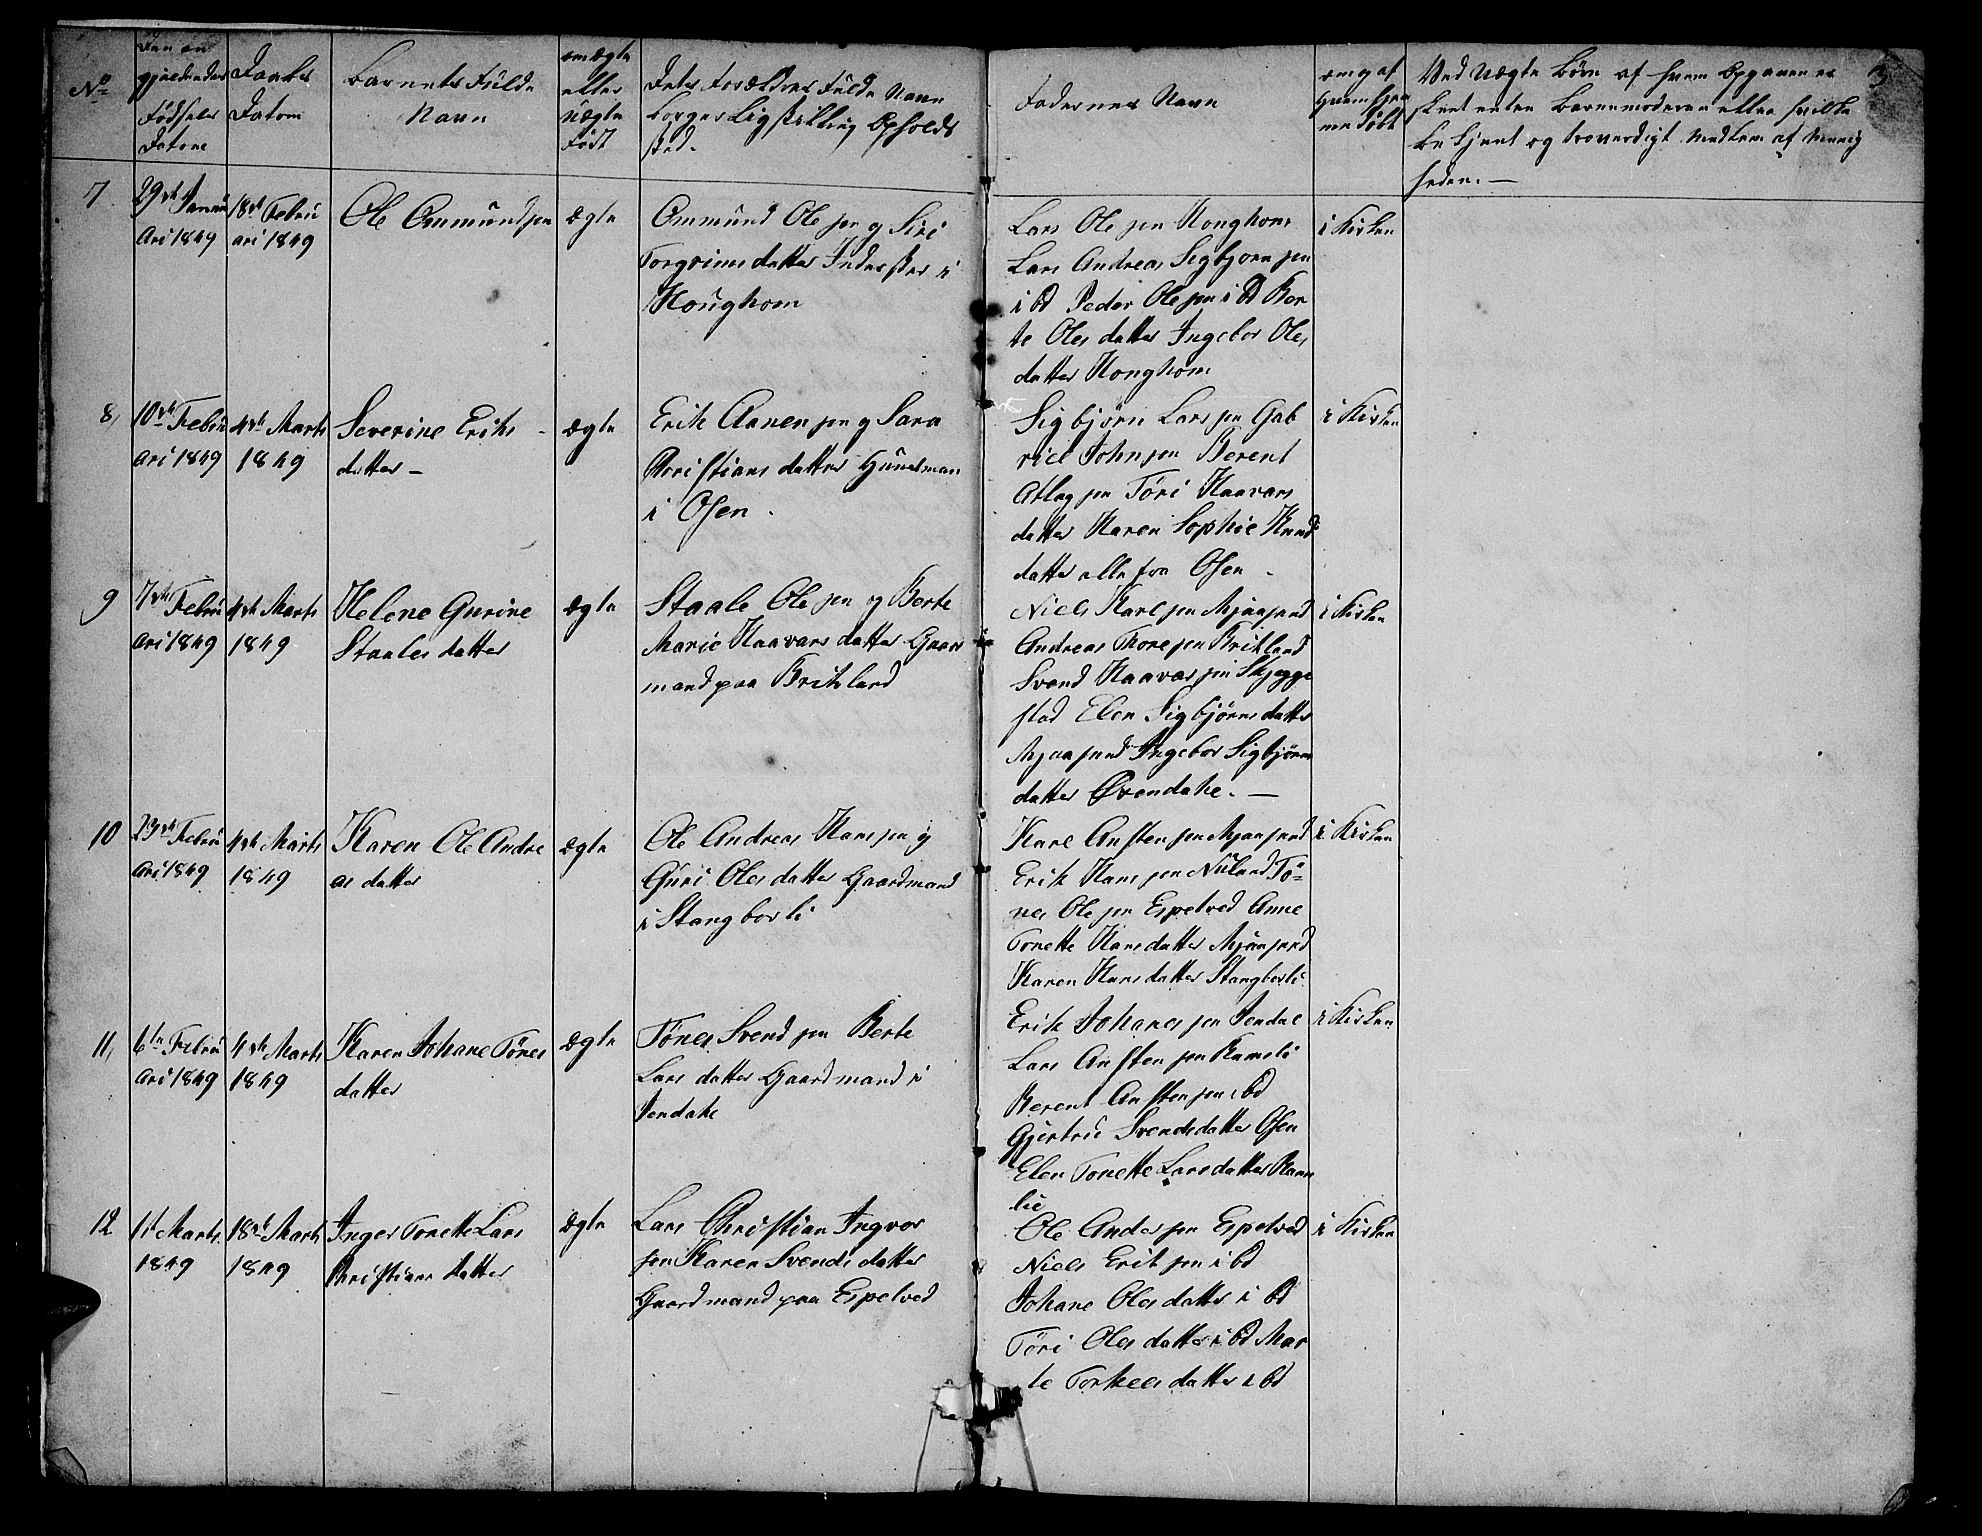 3
No
Den an
gjældendes
Fødsels
Datone
Daabs
Datom
Barnets Fulde
Navn
om ægte
eller
uægte
Født
Dets Forældres Fulde Navn
Borgerlig stilling Opholds
sted.
Fadernes Navn
om og af
Hvem hjem
me døbt
Ved uægte Børn af hvem Opgaven er
skeet enten Barnemoderen eller hvilke
be kjent og troverdigt Medlem af Menig
heden. —
7
29de Janu
ari 1849
18de Febru
ari 1849
Ole Ommundsen
ægte
Ommund Ole sen og Siri
Torgrims datter Inderster i
Houghom
Lars Ole sen Honghom
Lars Andreas Sigbjørn sen
i bd Peder Ole sen i bd Ber
te Oles datter Ingebor Oles
datter Honghom
i Kirken
8,
10de Febru
ari 1849
4de Marts
1849
Severine Eriks
datter —
ægte
Erik Aanen sen og Sara
Christians datter Huusman
i Osen .
Sigbjørn Lars sen Gab
riel John sen Berent
Atlag sen Tøri Haavars
datter Karen Sophie Knud
datter alle fra Osen
i Kirken
9
7de Febru
ari 1849
4de Marts
1849
Helene Gurine
Staales datter
ægte
Staale Ole sen og Berte
Marie Haavars datter Gaard
mand paa Birkland
Niels Karl sen Mjaasund
Andreas Thore sen Birkland
Svend Haavar sen Skjegge
stad Elen Sigbjørns datter
Mjaasund Ingebor Sigbjørns
datter Øvendahl. —
i Kirken
10
23de Febru
ari 1849
4de Marts
1849
Karen Ole Andre
as datter
ægte
Ole Andreas Hans sen og
Guri Oles datter Gaardmand
i Stangborli
Karl Austen sen Mjaasund
Erik Hans sen Nuland Tø=
nes Ole sen Espetved Anne
Tonette Hansdatter Mjaasund
Karen Hans datter Stangborli
i Kirken
11,
6te Febru
ari 1849
4de Marts
1849
Karen Johane Tønes
datter
ægte
Tønes Svend sen Berte
Lars datter Gaardmand i
Jendahl
Erik Johanes sen Jendal
Lars Austen sen Ramsli
Berent Austen sen i bd
Gjertrue Svendsdatter Osen
Elen Tonette Larsdatter Ram
lie
i Kirken
12
11te Marts
1849
18de Marts
1849
Inger Tonette Lars
Christians datter
ægte
Lars Christian Ingvor
sen Karen Svends datter
Gaardmand paa Espetved
Ole Anders sen Espetved
Niels Erik sen i bd
Johane Oles datter i bd
Tøri Oles datter i bd Mar
te Torkels datter i bd
i Kirken